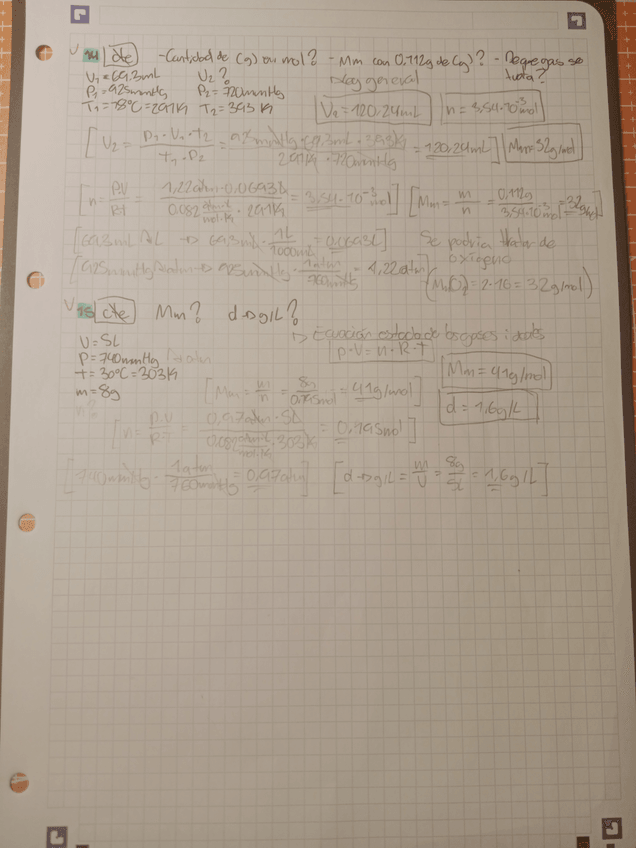 14 cte - Cantidad de (g) ou mol? - Mm con 0,112g de (g)? - De que gas se trata?
V₁ = 69,3mL V₂?
P₁ = 925mmHg P₂ = 720mmHg
T₁ = 18°C = 291K T₂ = 393K
V₂ = 120,24mL n = 3,54·10⁻³mol
[V₂ = P₁·V₁·T₂ / T₁·P₂ = 925mmHg·69,3mL·393K / 291K·720mmHg = 120,24mL] Mm = 32g/mol
[n = P·V / R·T = 1,22atm·0,0693L / 0,082 atm·L/mol·K · 291K = 3,54·10⁻³mol] [Mm = m/n = 0,112g / 3,54·10⁻³mol = 32g/mol]
[69,3mL a L → 69,3mL · 1L/1000mL = 0,0693L] Se podría tratar de oxígeno
[925mmHg a atm → 925mmHg · 1atm/760mmHg = 1,22atm] (M O₂) = 2·16 = 32g/mol)
15 cte Mm? d → g/L?
→ Ecuación estado de los gases ideales
V = 5L P·V = n·R·T
P = 740mmHg → atm
T = 30°C = 303K Mm = 41g/mol
m = 8g [Mm = m/n = 8g / 0,195mol = 41g/mol] d = 1,6g/L
[n = P·V / R·T = 0,97atm·5L / 0,082 atm·L/mol·K · 303K = 0,195mol]
[740mmHg · 1atm/760mmHg = 0,97atm] [d → g/L = m/V = 8g/5L = 1,6g/L]